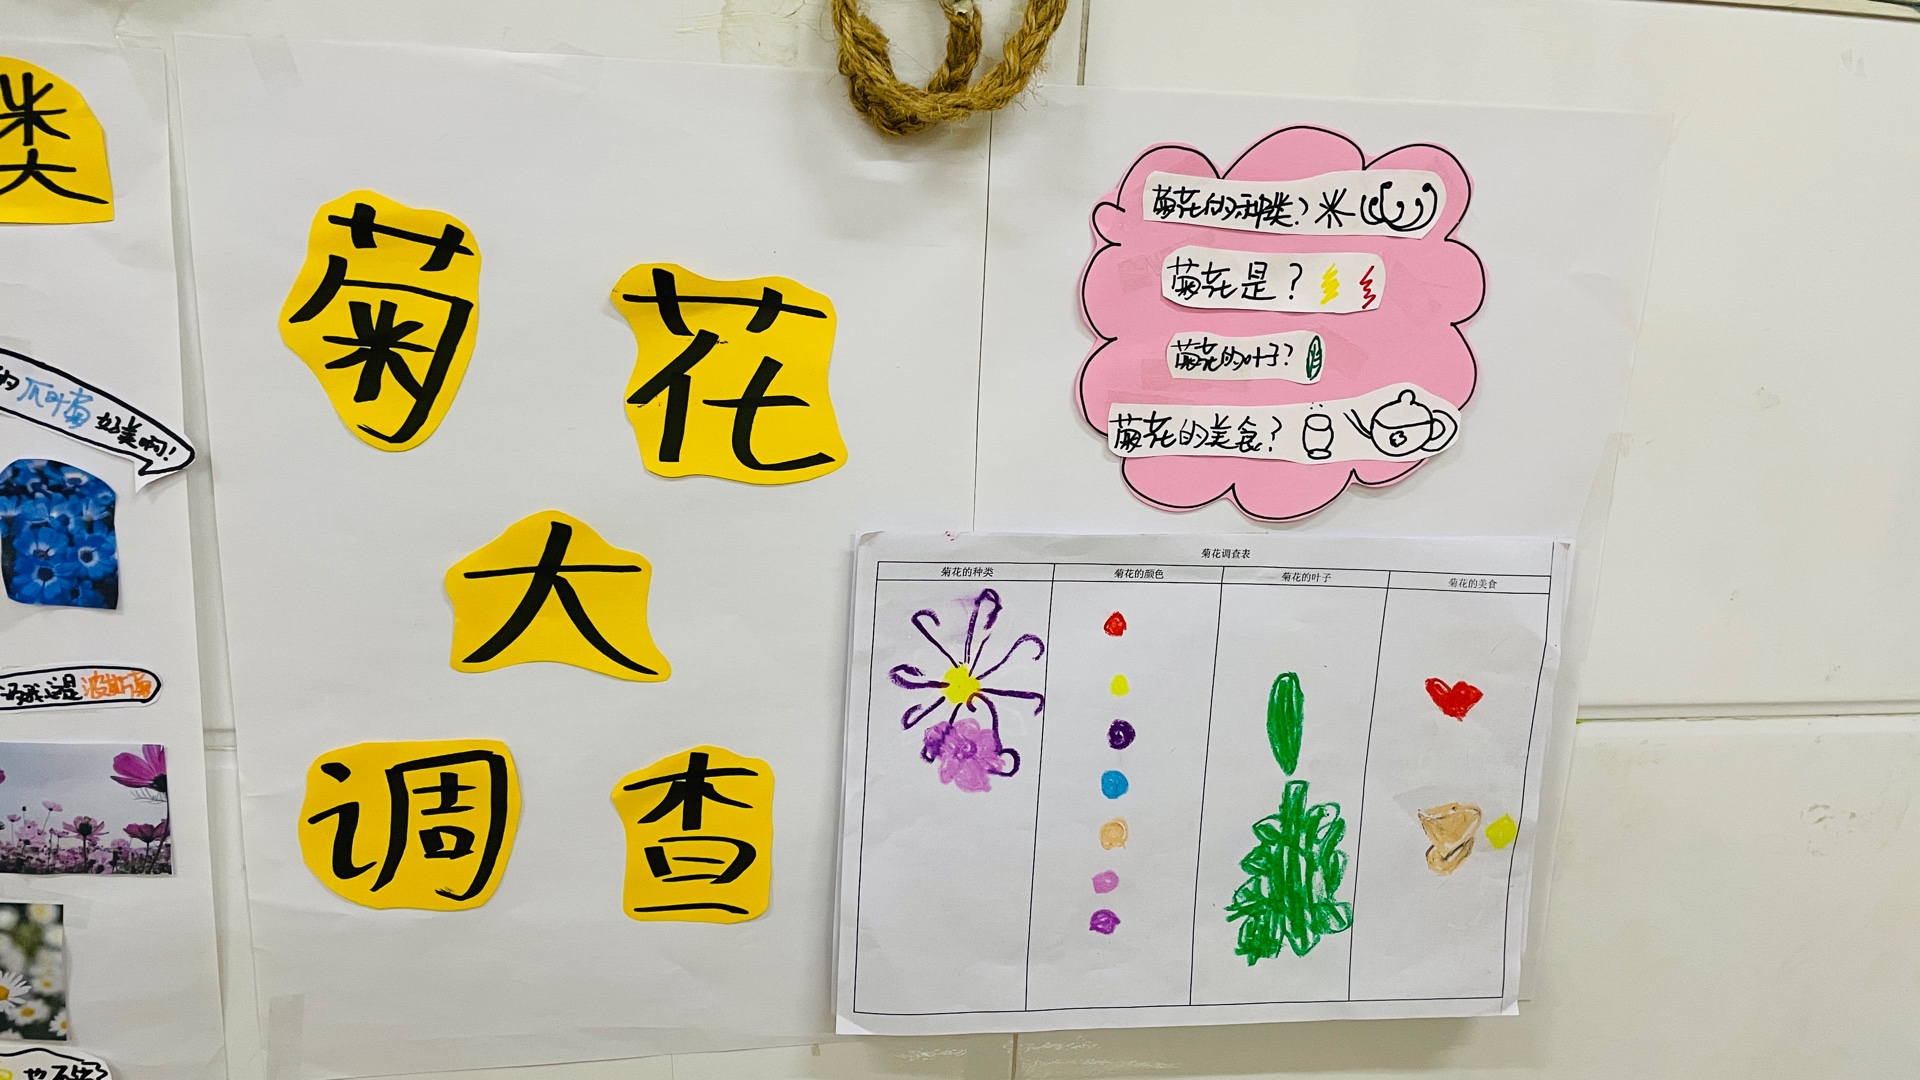 类
的瓜叶菊好美啊!
波斯菊
菊花
大
调查
菊花的种类?
菊花是?
菊花的叶子?
菊花的美食?
菊花调查表
菊花的种类 菊花的颜色 菊花的叶子 菊花的美食